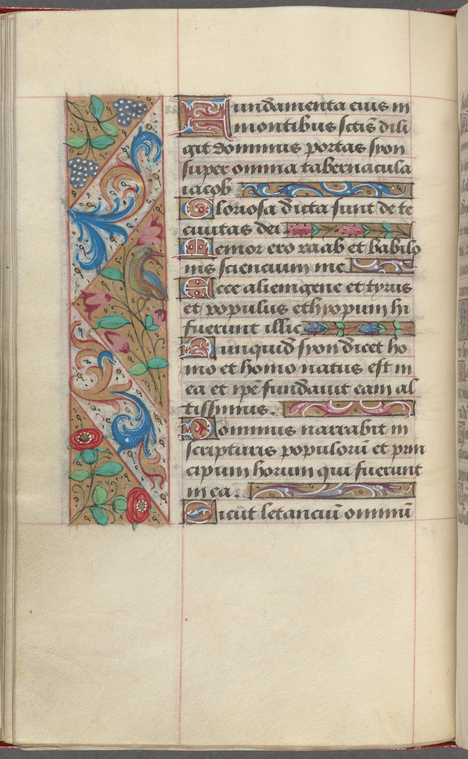 Fundamenta eius in
montibus sctīs dili
git dominus portas syon
super omnia tabernacula
iacob
Gloriosa dicta sunt de te
ciuitas dei
Memor ero raab et babilo
nis sciencium me
Ecce alienigene et tyrus
et populus ethyopum hi
fuerunt illic
Nunquid syon dicet ho
mo et homo natus est in
ea et ip̄e fundauit eam al
tissimus.
Dominus narrabit in
scripturis populorū et prin
cipum horum qui fuerunt
in ea.
Sicut letanciū omniū